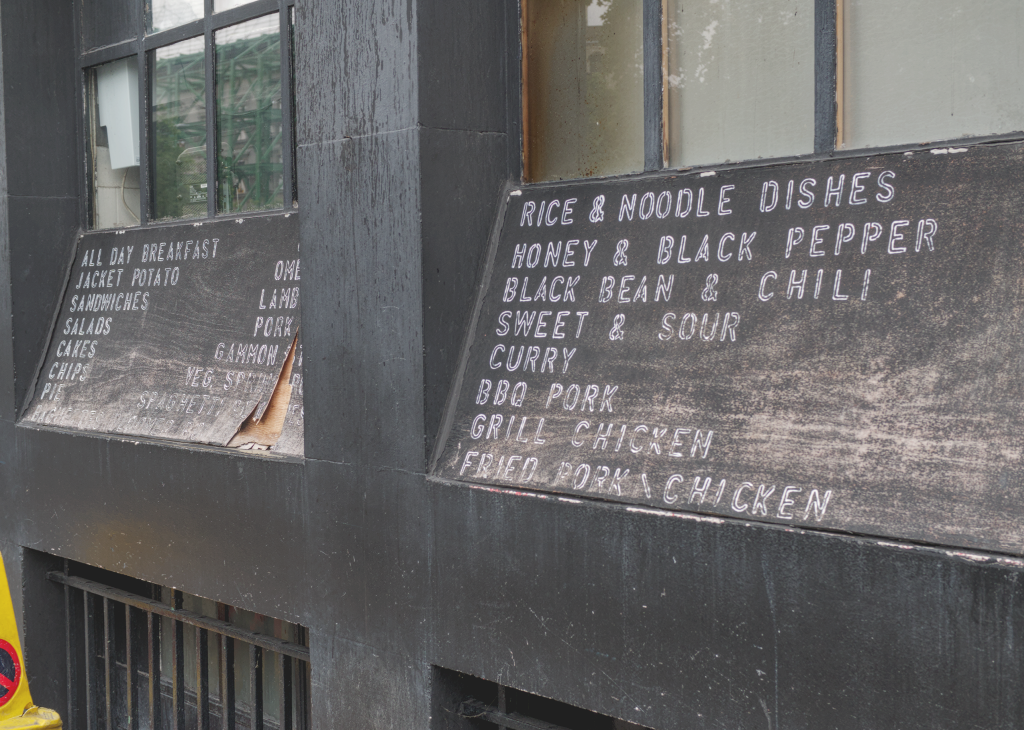 ALL DAY BREAKFAST
JACKET POTATO
SANDWICHES
SALADS
CAKES
CHIPS
PIE
OME
LAMB
PORK
GAMMON
VEG
SPAGHETTI
RICE & NOODLE DISHES
HONEY & BLACK PEPPER
BLACK BEAN & CHILI
SWEET & SOUR
CURRY
BBQ PORK
GRILL CHICKEN
FRIED PORK \ CHICKEN